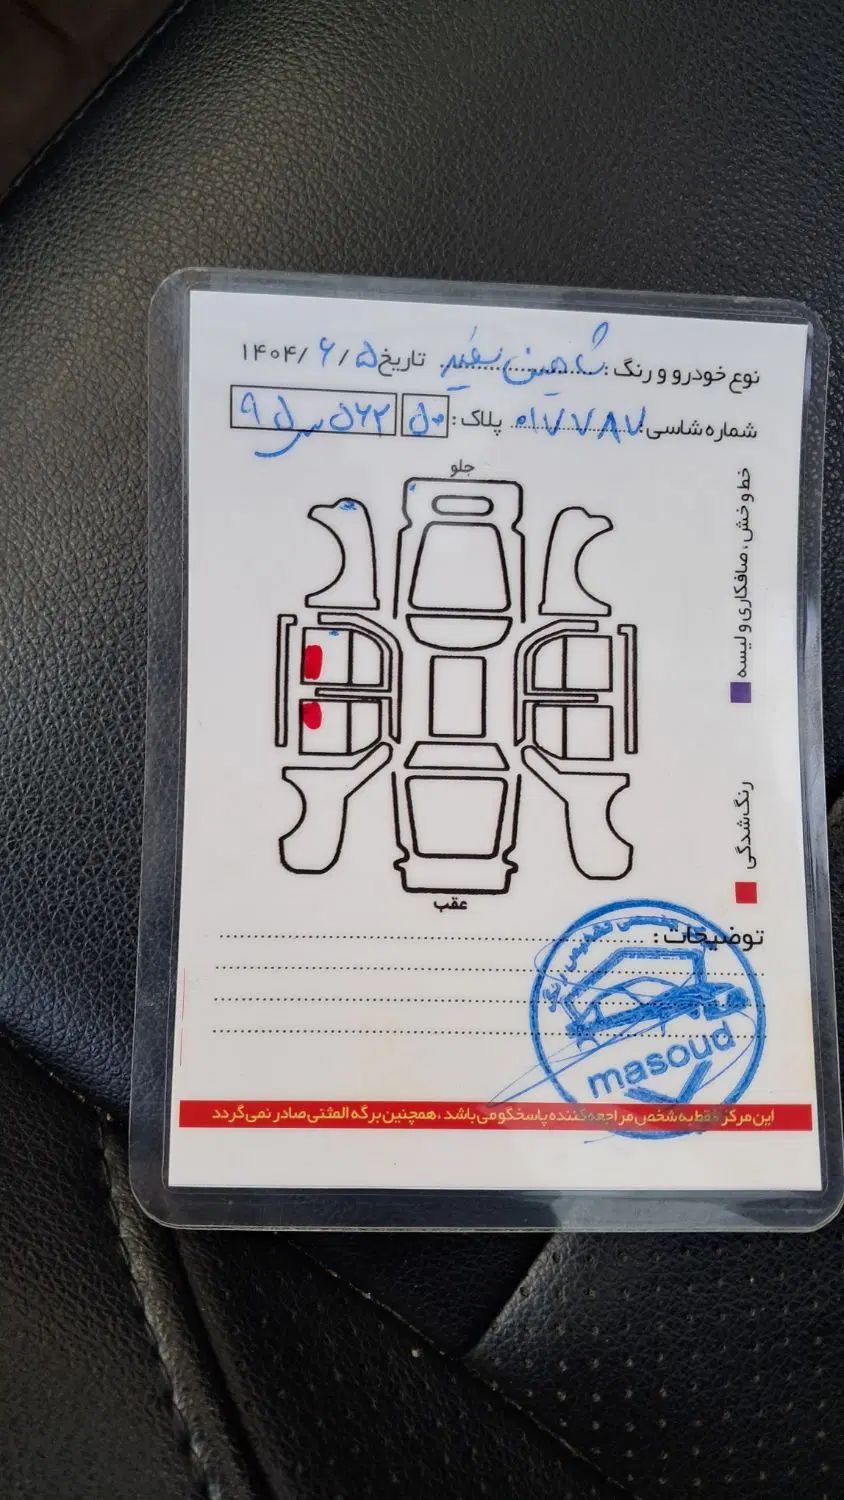 نوع خودرو و رنگ: شاهین سفید تاریخ ۱۴۰۴/۶/۵
شماره شاسی: ۰۱۷۷۸۷ پلاک: ۵۰ ۵۶۲س۹۵
جلو
خط و خش، صافکاری و لیسه
رنگ شدگی
عقب
توضیحات:
masoud
این مرکز فقط به شخص مراجعه کننده پاسخگو می باشد، همچنین برگه المثنی صادر نمی گردد